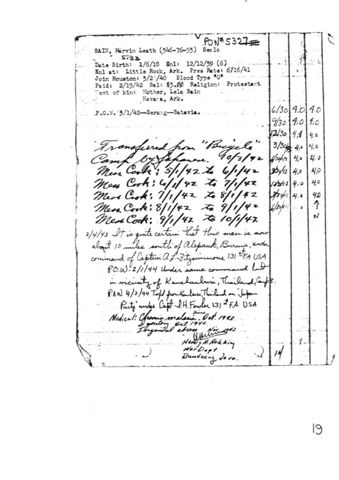 POW# 5327
BAIN, Marvin Leath (346-76-53) Sea1c
5722
Date Birth: 1/6/18 Enl: 12/12/39 (6)
Enl at: Little Rock, Ark. Pres Rate: 6/16/41
Join Houston: 3/2/40 Blood Type "O"
Paid: 2/15/42 Bal: $5.00 Religion: Protestant
Next of kin: Mother, Lela Bain
Havana, Ark.
P.O.W. 3/1/42--Serang--Batavia.
6/30 4.0 4.0
9/30 4.0 4.0
12/30 4.0 4.0
3/30 4.0 4.0
Transferred from "Bicycle"
Camp by Japanese. 10/3/42
Mess Cook: 5/1/42 to 6/1/42
Mess Cook: 6/1/42 to 7/1/42
Mess Cook: 7/1/42 to 8/1/42
Mess Cook: 8/1/42 to 9/1/42
Mess Cook: 9/1/42 to 10/1/42
2/4/43 It is quite certain that this man is now
about 10 miles south of Alepauk, Burma, under
command of Captain A.L. Fitzsimmons 131st FA USA
P.O.W. 2/1/44 Under same command but
in vicinity of Kanchanburi, Thailand, Camp
P.O.W. 4/2/44 Thailand on "Japan
Party" under Capt. I.H. Fowler 131st F.A. USA
Medical: Chronic malaria Oct 1942
Dysentery Oct 1942
Nov 1942
Henry H.
War Dept
Bandoeng Java
19